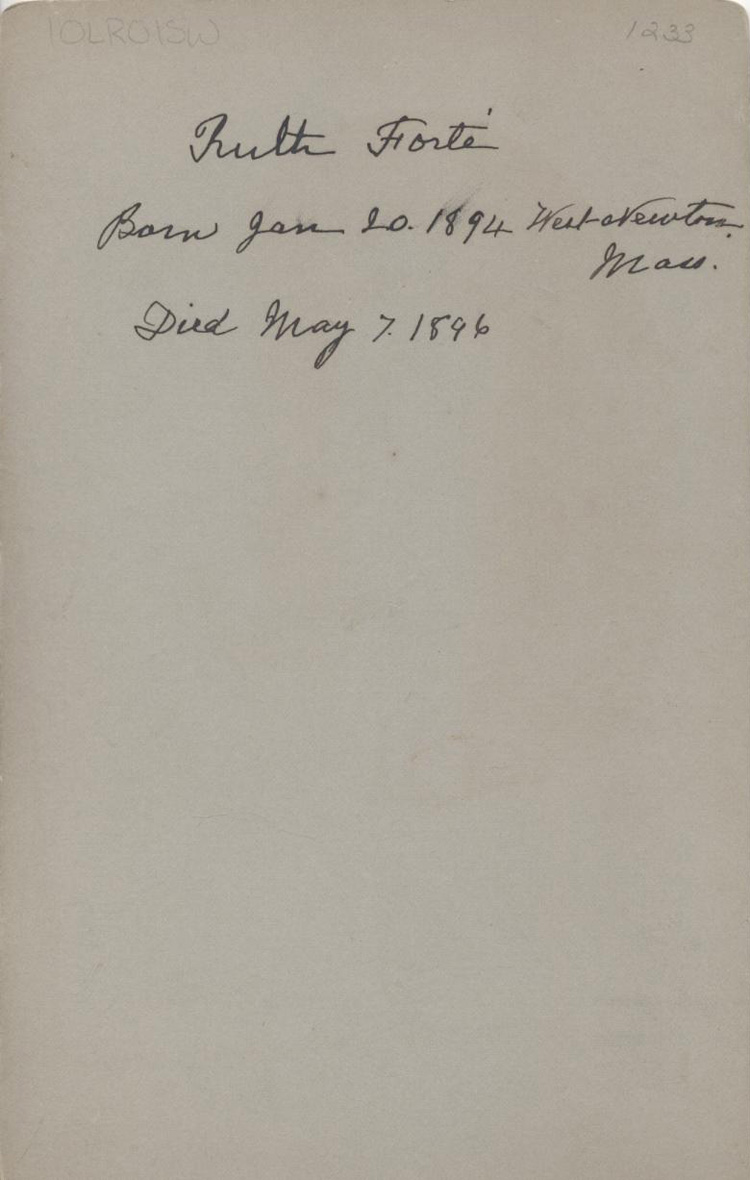 IOLROISW 1233
Ruth Forté
Born Jan 20. 1894 West Newton.
Mass.
Died May 7. 1896